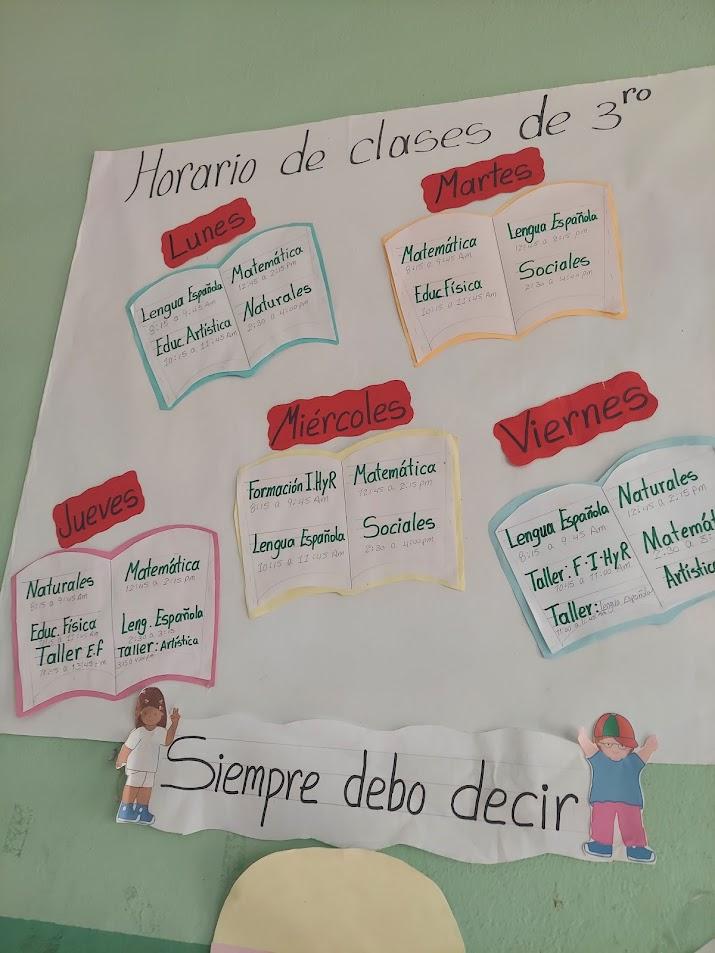 Horario de clases de 3ro
Lunes
Lengua Española
8:15 a 9:45 Am
Educ. Artística
10:15 a 11:45 Am
Matemática
12:45 a 2:15 pm
Naturales
2:30 a 4:00 pm
Martes
Matemática
8:15 a 9:45 Am
Educ Física
10:15 a 11:45 Am
Lengua Española
12:45 a 2:15 pm
Sociales
2:30 a 4:00 pm
Miércoles
Formación I.HyR
8:15 a 9:45 Am
Lengua Española
10:15 a 11:45 Am
Matemática
12:45 a 2:15 pm
Sociales
2:30 a 4:00 pm
Jueves
Naturales
8:15 a 9:45 Am
Educ. Física
Taller E.F
Matemática
12:45 a 2:15 pm
Leng. Española
2:30 a 3:15
Taller: Artística
Viernes
Lengua Española
8:15 a 9:45 Am
Taller: F.I.HyR
Taller: Lengua Española
Naturales
12:45 a 2:15 pm
Matemát
2:30 a 3:
Artístic
Siempre debo decir